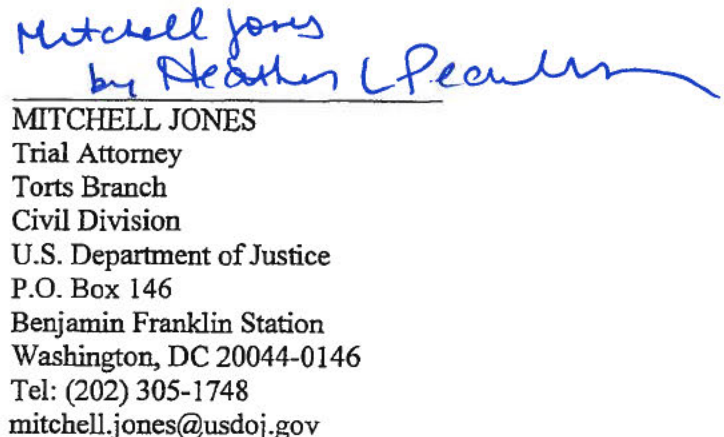 Mitchell Jones
by Heather L Pearlman
MITCHELL JONES
Trial Attorney
Torts Branch
Civil Division
U.S. Department of Justice
P.O. Box 146
Benjamin Franklin Station
Washington, DC 20044-0146
Tel: (202) 305-1748
mitchell.jones@usdoj.gov